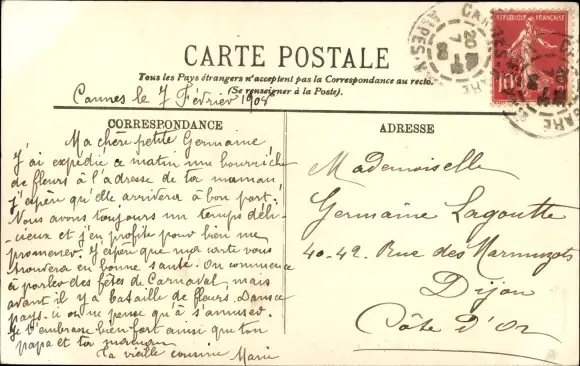 CARTE POSTALE
Tous les Pays étrangers n'acceptent pas la Correspondance au recto.
(Se renseigner à la Poste).
REPUBLIQUE FRANÇAISE
10
Cannes le 7 Février 1908
CORRESPONDANCE
Ma chère petite Germaine,
J'ai expédié ce matin une bourriche
de fleurs à l'adresse de ta maman,
j'espère qu'elle arrivera à bon port.
Nous avons toujours un temps déli-
-cieux et j'en profite pour bien me
promener. J'espère que ma carte vous
trouvera en bonne santé. On commence
à parler des fêtes de Carnaval, mais
avant il y a bataille de fleurs. Dans ce
pays-ii on ne pense qu'à s'amuser.
Je t'embrasse bien fort ainsi que ton
papa et ta maman
ta vieille cousine Marie
ADRESSE
Mademoiselle
Germaine Lagoutte
40-42 Rue des Marmuzots
Dijon
Côte d'Or